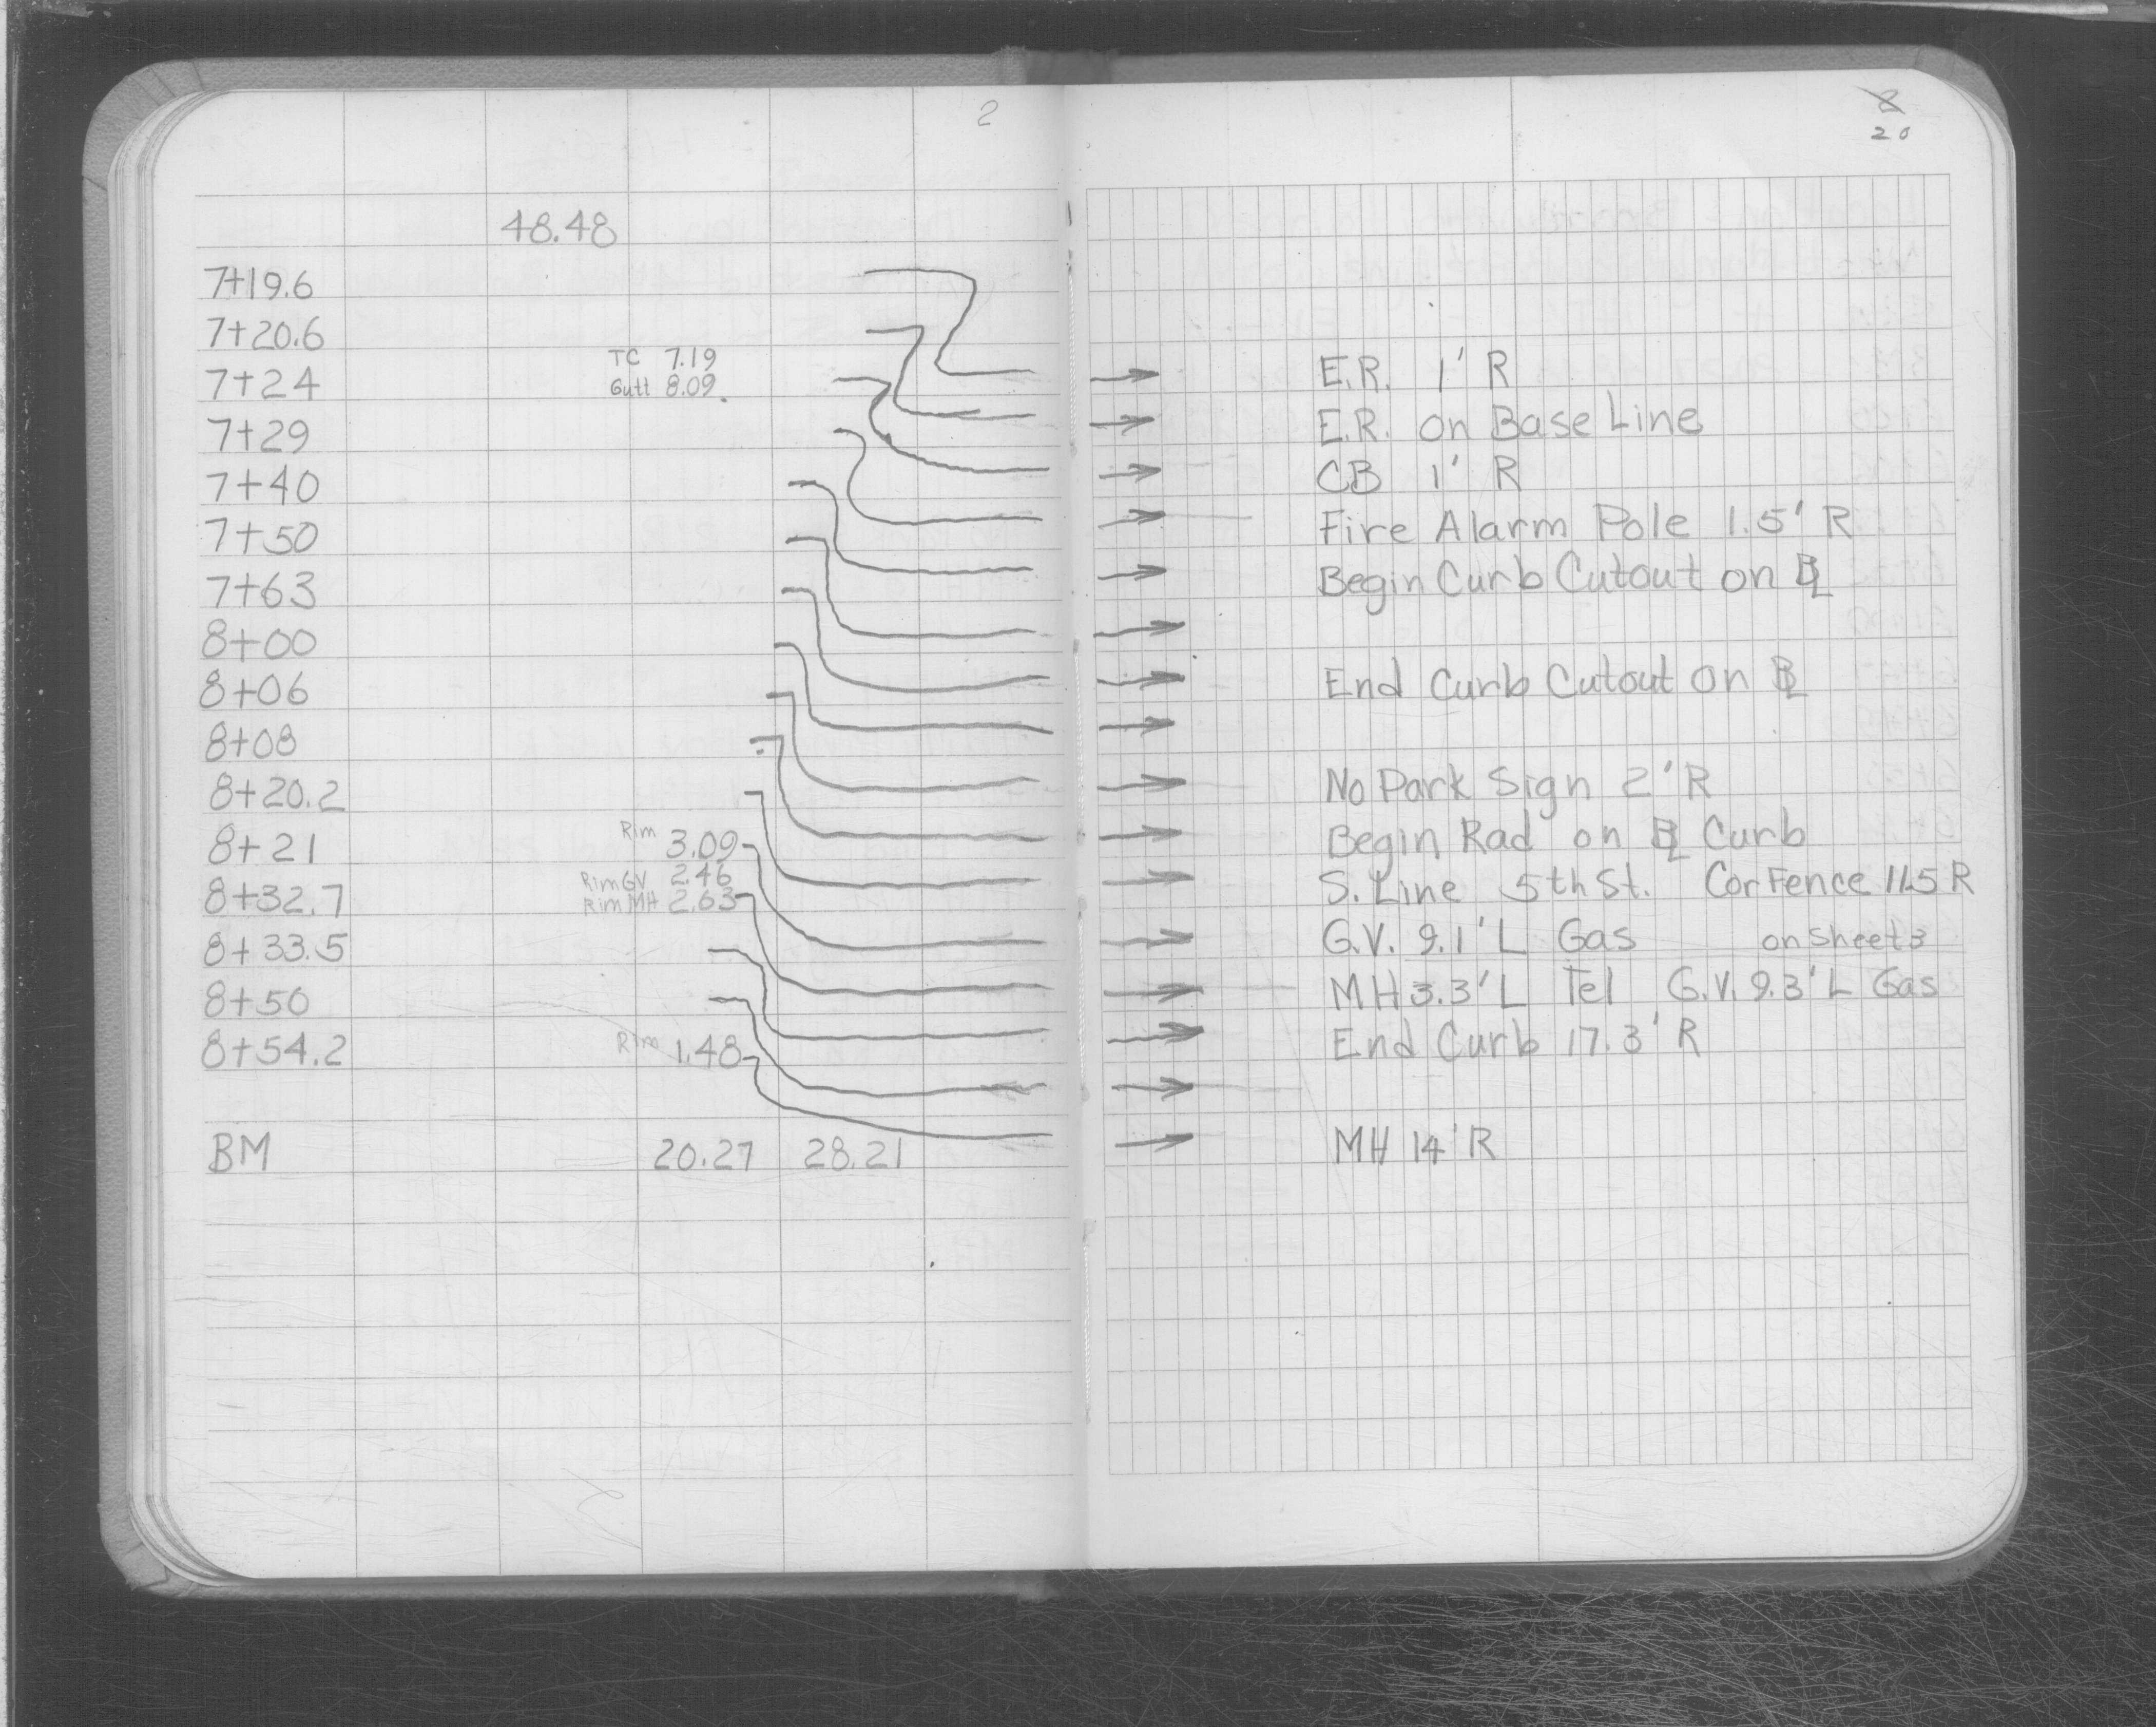 2
8
20
48.48
7+19.6
7+20.6
TC 7.19
7+24 Gutt 8.09 E.R. 1' R
7+29 E.R. on Base Line
7+40 CB 1' R
7+50 Fire Alarm Pole 1.5' R
7+63 Begin Curb Cutout on BL
8+00
8+06 End Curb Cutout on BL
8+08
8+20.2 No Park Sign 2' R
8+21 Rim 3.09 Begin Rad on BL Curb
Rim GV 2.46
8+32.7 Rim MH 2.63 S. Line 5th St. Cor Fence 11.5 R
8+33.5 G.V. 9.1' L Gas on Sheet 3
8+50 MH 3.3' L Tel G.V. 9.3' L Gas
8+54.2 Rim 1.48 End Curb 17.3' R
BM 20.27 28.21 MH 14' R